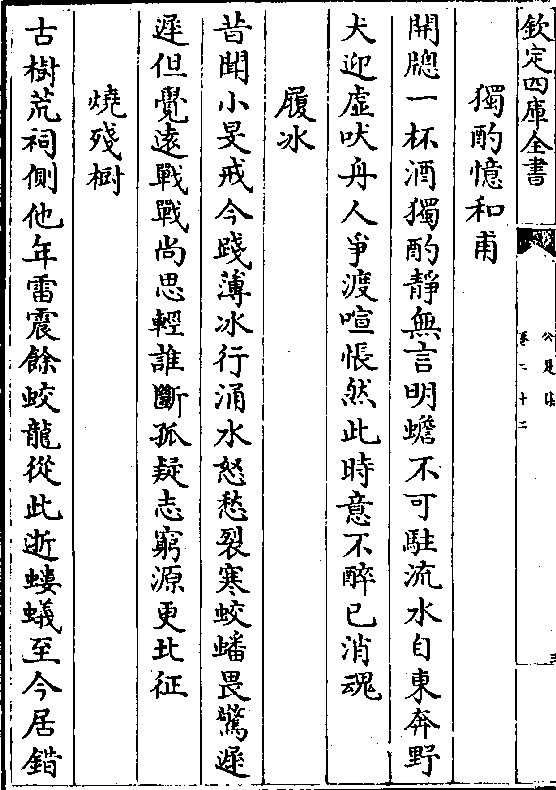 欽定四庫全書
公是集
卷二十二
獨酌憶和甫
開牎一杯酒獨酌靜無言明蟾不可駐流水自東奔野
犬迎虛吠舟人爭渡喧悵然此時意不醉已消魂
履冰
昔聞小旻戒今踐薄冰行涌水怒愁裂寒蛟蟠畏驚遲
遲但覺遠戰戰尚思輕誰斷孤疑志窮源更北征
燒殘樹
古樹荒祠側他年雷震餘蛟龍從此逝螻蟻至今居錯